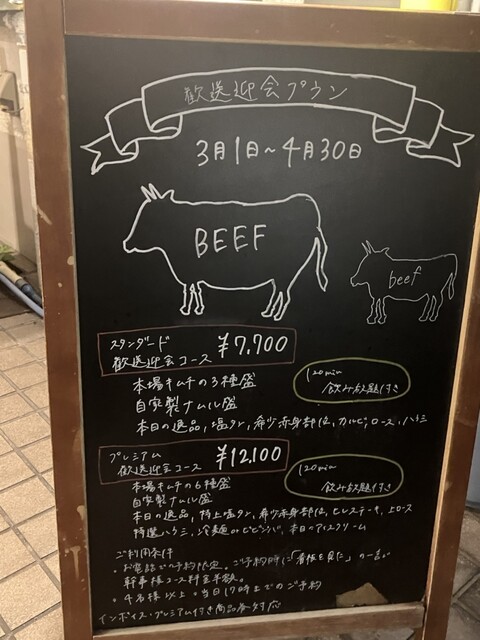 歓送迎会プラン
3月1日~4月30日
BEEF
beef
スタンダード
歓送迎会コース ¥7,700
120min
飲み放題付き
本場キムチの3種盛
自家製ナムル盛
本日の逸品, 塩タン, 希少赤身部位, カルビ, ロース, ハラミ
プレミアム
歓送迎会コース ¥12,100
120min
飲み放題付き
本場キムチの6種盛
自家製ナムル盛
本日の逸品, 特上塩タン, 希少赤身部位, ヒレステーキ, 上ロース
特選ハラミ, 冷麺orビビンバ, 本日のアイスクリーム
ご利用条件
・お電話での予約限定。ご予約時に「看板を見た」の一言が
幹事様コース料金半額。
・4名様以上・当日17時までのご予約
インボイス・プレミアム付き商品券対応